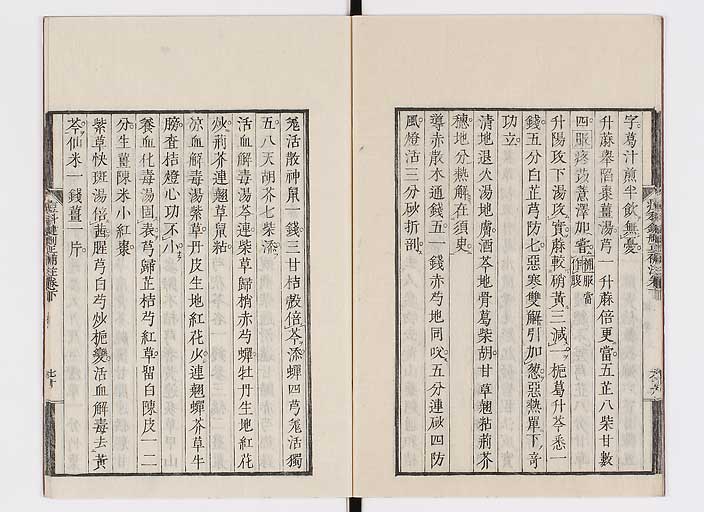 字葛汁煎半飲無憂
升蔴擧陷棗薑湯芎一升蔴倍更當五芷八柴甘數
四服疼蒡薏澤加甞
升陽攻下湯攻實蔴較硝黃三減一梔葛升芩悉一
錢五分白芷芎防七惡寒雙解引加葱惡熱單下奇
功立
清地退火湯地膚酒芩地骨葛柴胡甘草翹粘荊芥
穗地分熱解在須臾
導赤散本通錢五一錢赤芍地同㕮五分連砍四防
風燈活三分砍折剖
羗活散神鼠一錢三甘桔殼倍芩添蟬四芎羗活獨
五八天胡芥七柴添
活血解毒湯芩連柴草歸梢赤芍蟬牡丹生地紅花
炒荊芥連翹草鼠粘
凉血解毒湯紫草丹皮生地紅花火連翹蟬芥草牛
膀查桔燈心功不小
養血化毒湯固表芎歸芷桔芍紅草畱白陳皮一二
分生薑陳米小紅棗
紫草快斑湯倍茜腥芎白芍炒梔變活血解毒去黃
芩仙米一錢薑一片